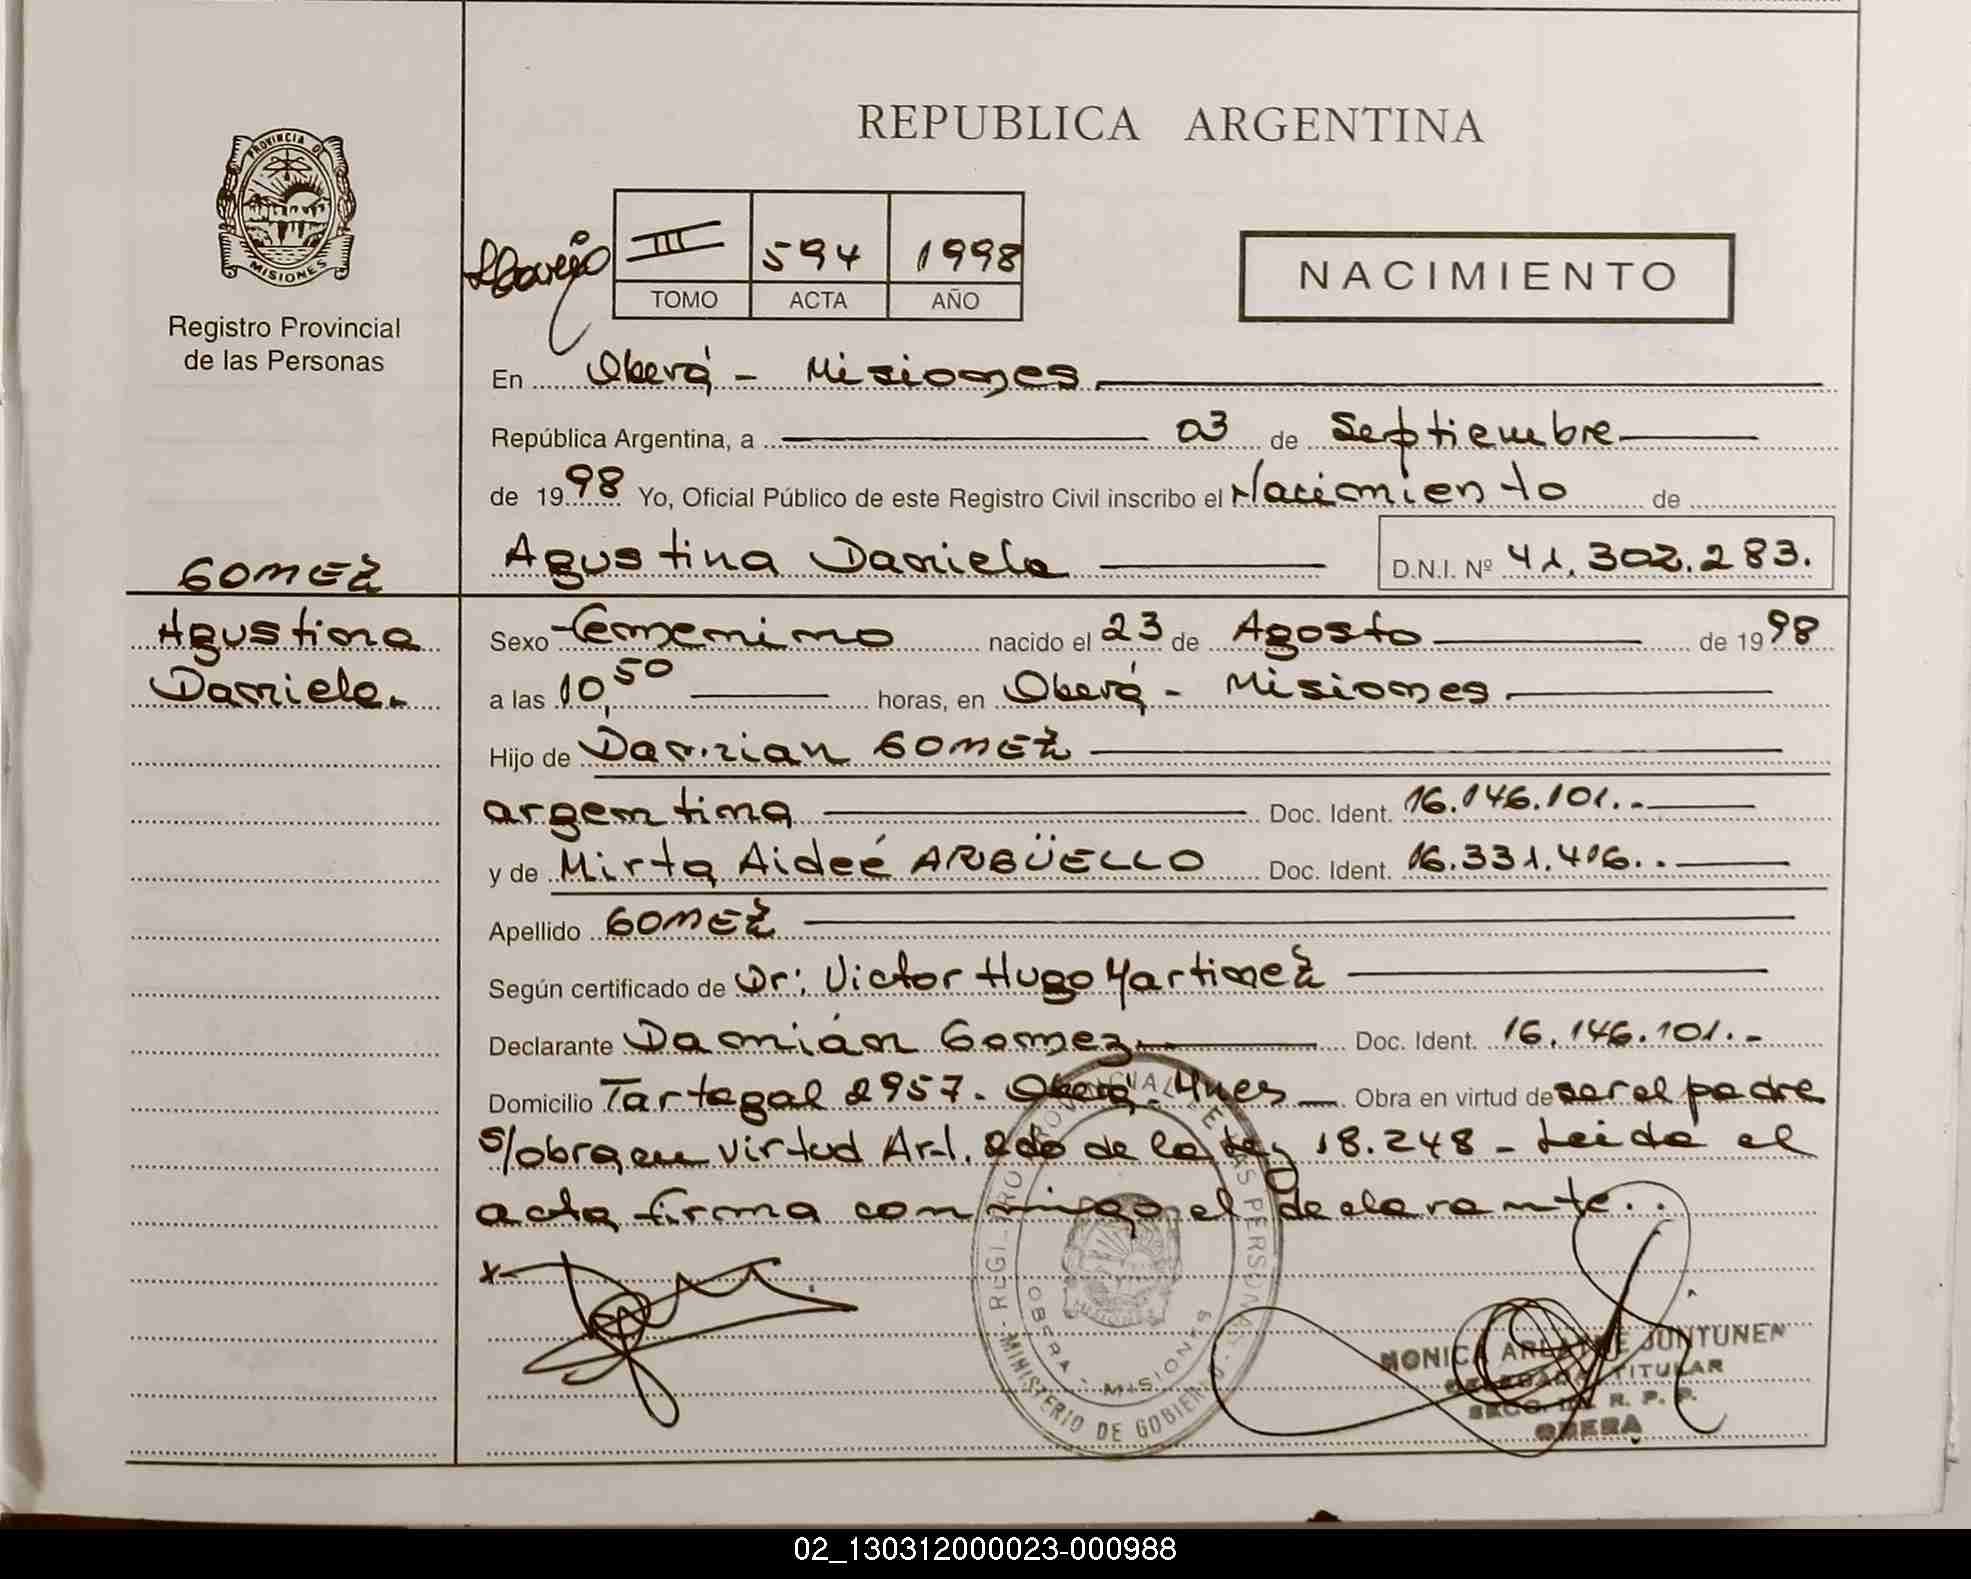 REPUBLICA ARGENTINA
PROVINCIA D
MISIONES
Registro Provincial
de las Personas
III 594 1998
TOMO ACTA AÑO
NACIMIENTO
En Oberá - Misiones
República Argentina, a 03 de Septiembre
de 1998 Yo, Oficial Público de este Registro Civil inscribo el Nacimiento de
Agustina Daniela D.N.I. Nº 41.302.283.
GOMEZ
Agustina
Daniela.
Sexo femenino nacido el 23 de Agosto de 1998
a las 10,50 horas, en Oberá - Misiones
Hijo de Damián GOMEZ
argentina Doc. Ident. 16.146.101.-
y de Mirta Aideé ARGÜELLO Doc. Ident. 16.331.416..
Apellido GOMEZ
Según certificado de Dr: Victor Hugo Martinez
Declarante Damián Gomez Doc. Ident. 16.146.101.-
Domicilio Tartagal 2957. Oberá. Mnes Obra en virtud de ser el padre
s/obra en virtud Art. 2do de la Ley 18.248 - Leida el
acta firma conmigo el declarante..
x
MINISTERIO DE GOBIERNO
OBERA - MISIONES
MONICA ARLEN E JUNTUNEN
DELEGADA TITULAR
SECC. R. P. P.
OBERA
02_130312000023-000988